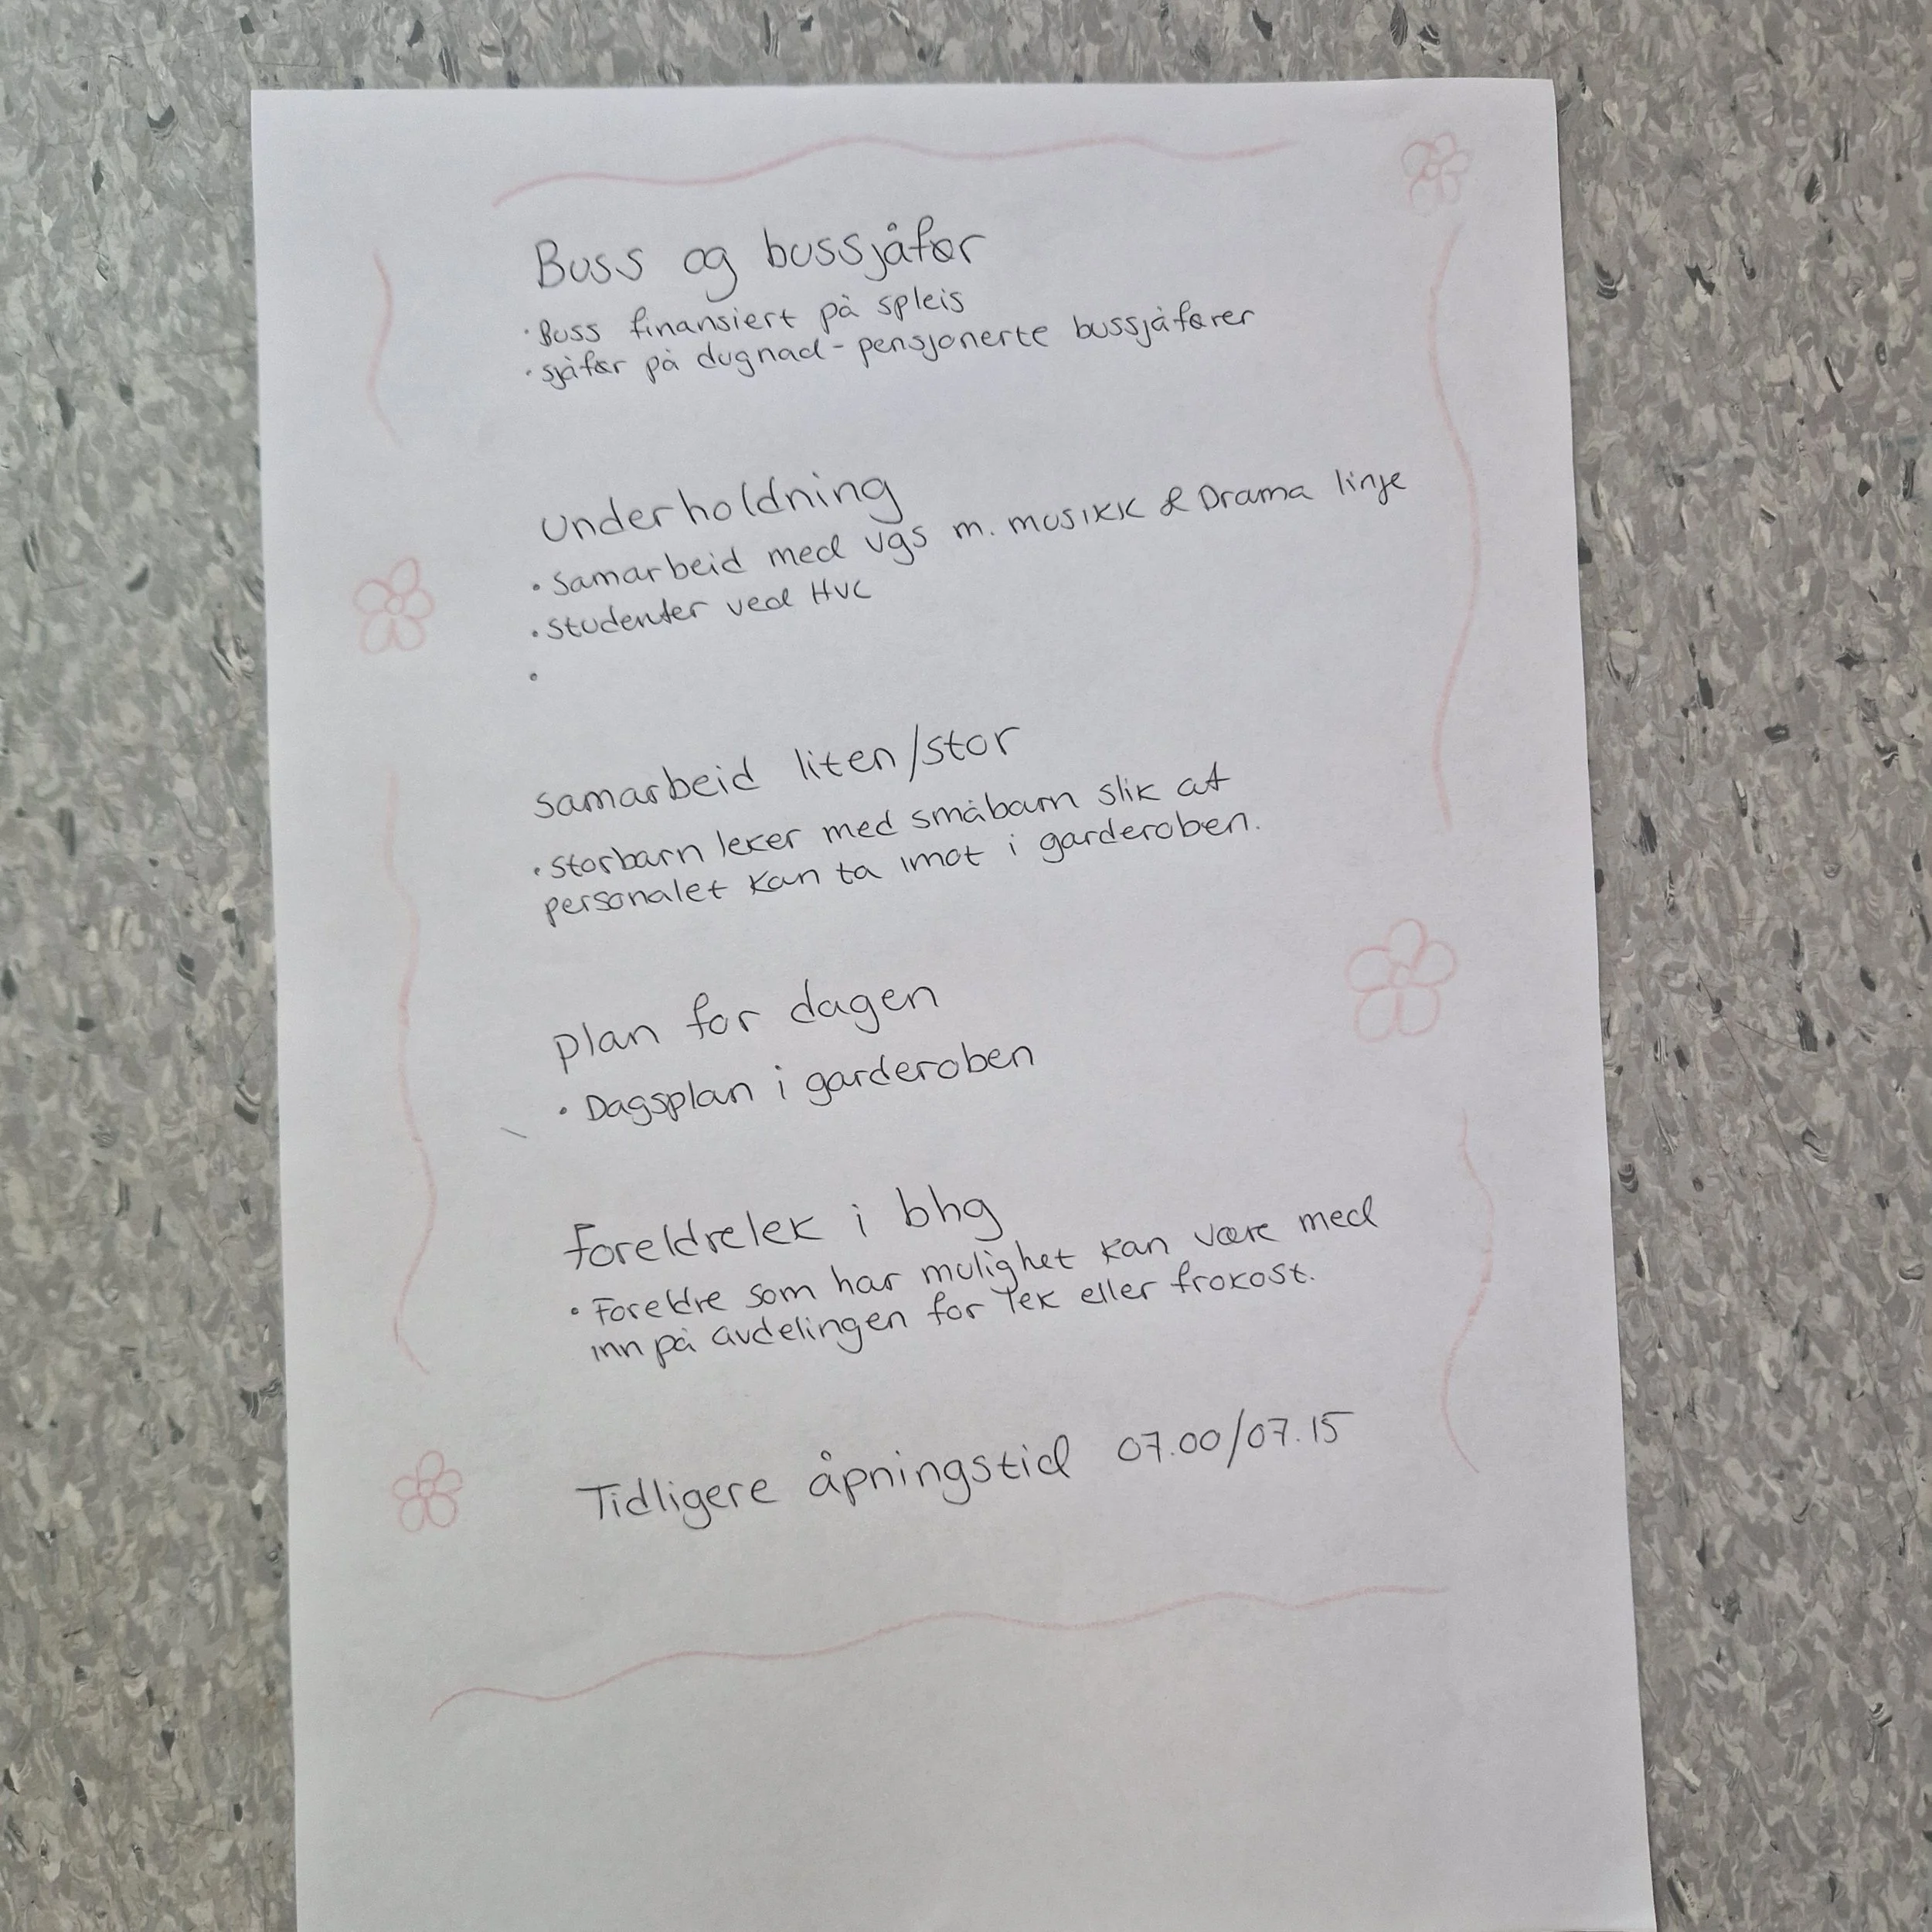 Buss og bussjåfør
· Buss finansiert på spleis
· sjåfør på dugnad - pensjonerte bussjåfører
underholdning
· samarbeid med vgs m. musikk & Drama linje
· studenter ved HVL
·
samarbeid liten/stor
· storbarn leker med småbarn slik at
personalet kan ta imot i garderoben.
plan for dagen
· Dagsplan i garderoben
foreldrelek i bhg
· Foreldre som har mulighet kan være med
inn på avdelingen for lek eller frokost.
Tidligere åpningstid 07.00/07.15